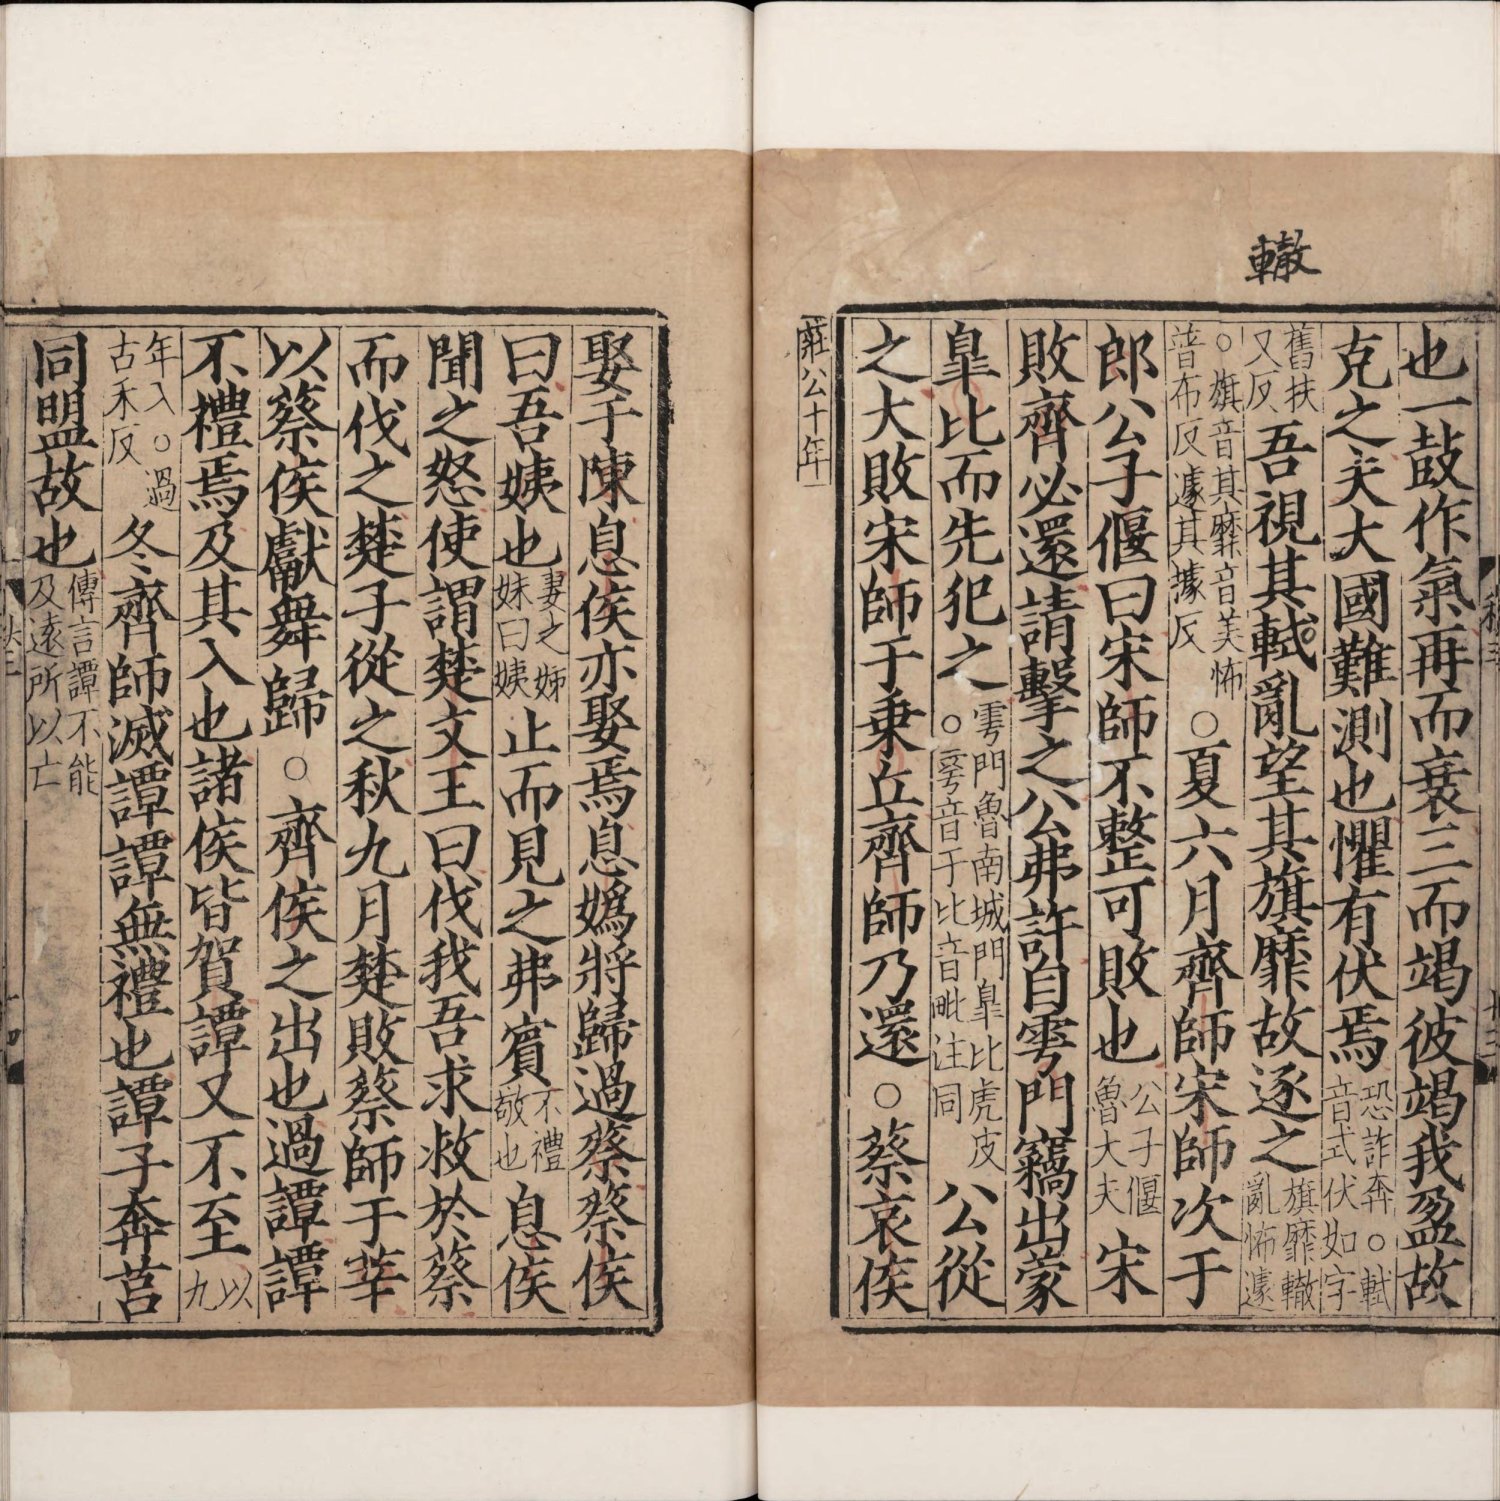 轍
也一鼓作氣再而衰三而竭彼竭我盈故
克之夫大國難測也懼有伏焉恐詐奔○軾音式伏如字
舊扶又反吾視其轍亂望其旗靡故逐之旗靡轍亂怖遽
○旗音其靡音美怖普布反遽其據反○夏六月齊師宋師次于
郎公子偃曰宋師不整可敗也公子偃魯大夫宋
敗齊必還請擊之公弗許自雩門竊出蒙
臯比而先犯之雩門魯南城門臯比虎皮○雩音于比音毗注同公從
之大敗宋師于乗丘齊師乃還○蔡哀侯
莊公十年
娶于陳息侯亦娶焉息媯將歸過蔡蔡侯
曰吾姨也妻之姊妹曰姨止而見之弗賓不禮敬也息侯
聞之怒使謂楚文王曰伐我吾求救於蔡
而伐之楚子從之秋九月楚敗蔡師于莘
以蔡侯獻舞歸○齊侯之出也過譚譚
不禮焉及其入也諸侯皆賀譚又不至以九
年入○過古禾反冬齊師滅譚譚無禮也譚子奔莒
同盟故也傳言譚不能及遠所以亡